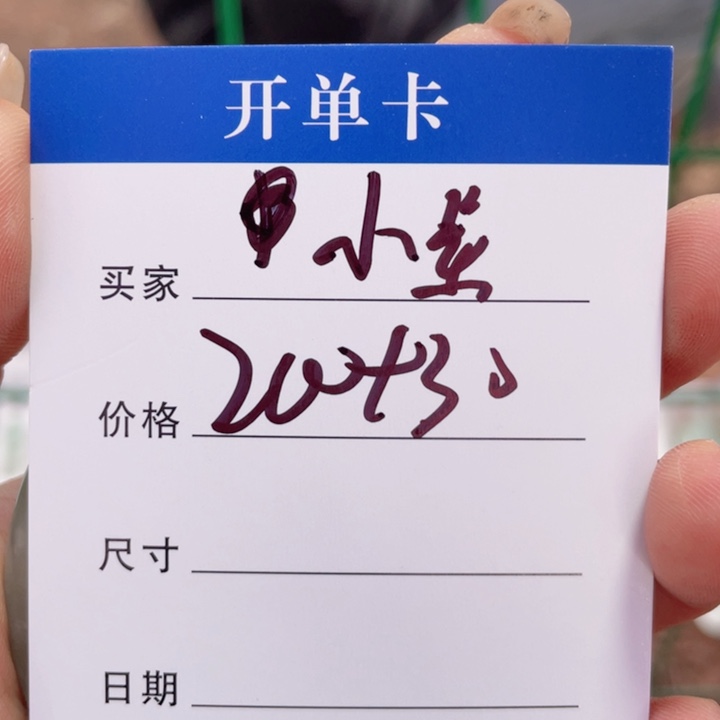 开单卡
买家 申小燕
价格 200+30
尺寸
日期